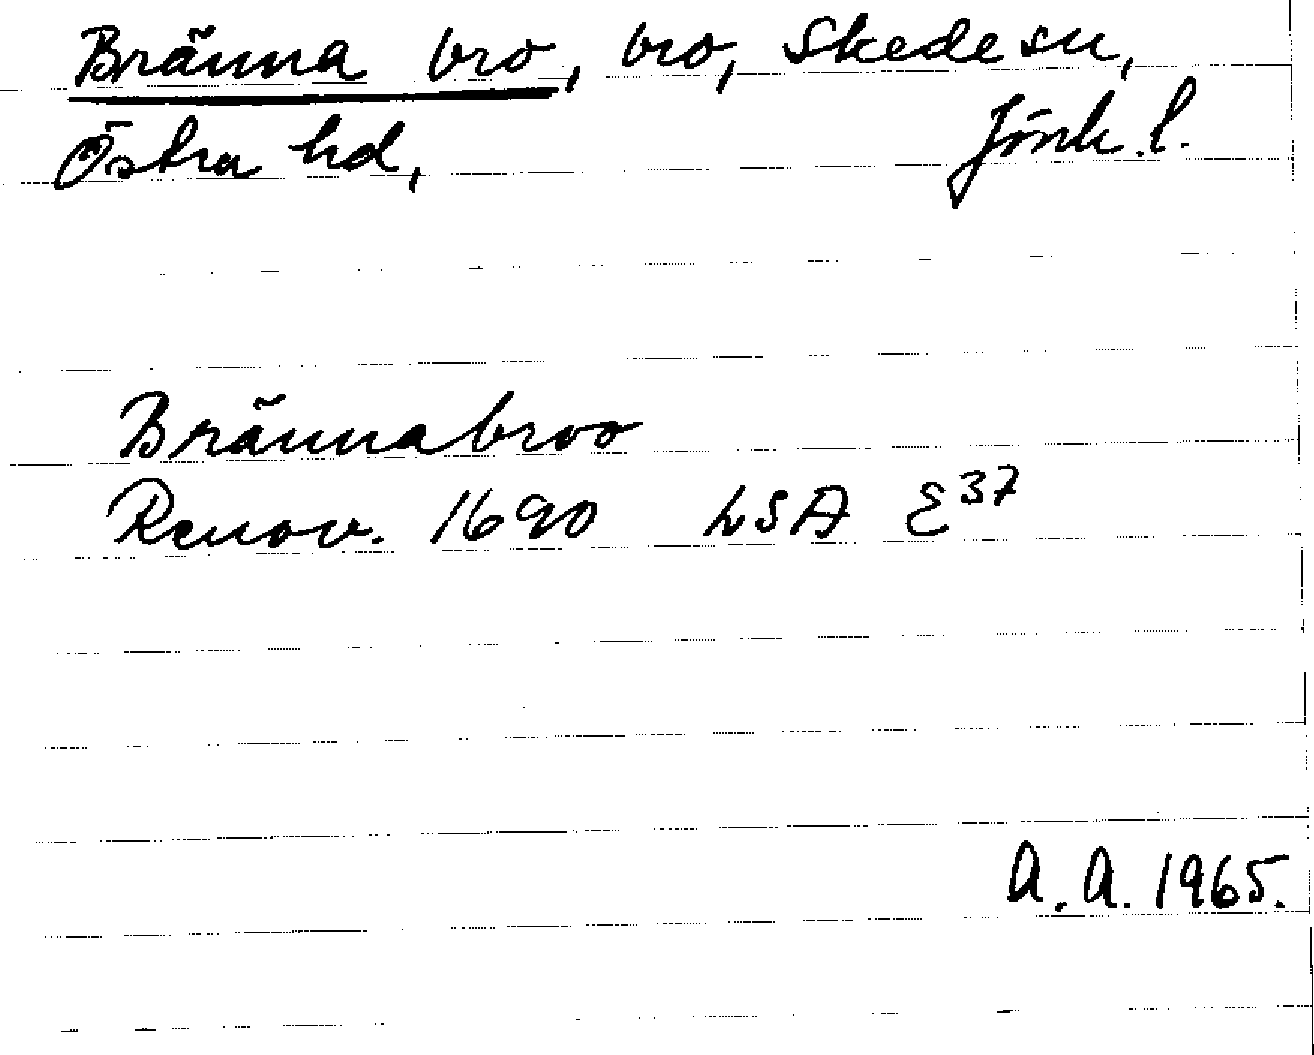 Bränna bro, bro, Skede sn,
Östra hd, Jönk. l.
Brännabroo
Renov. 1690 LSA E³⁷
A. A. 1965.